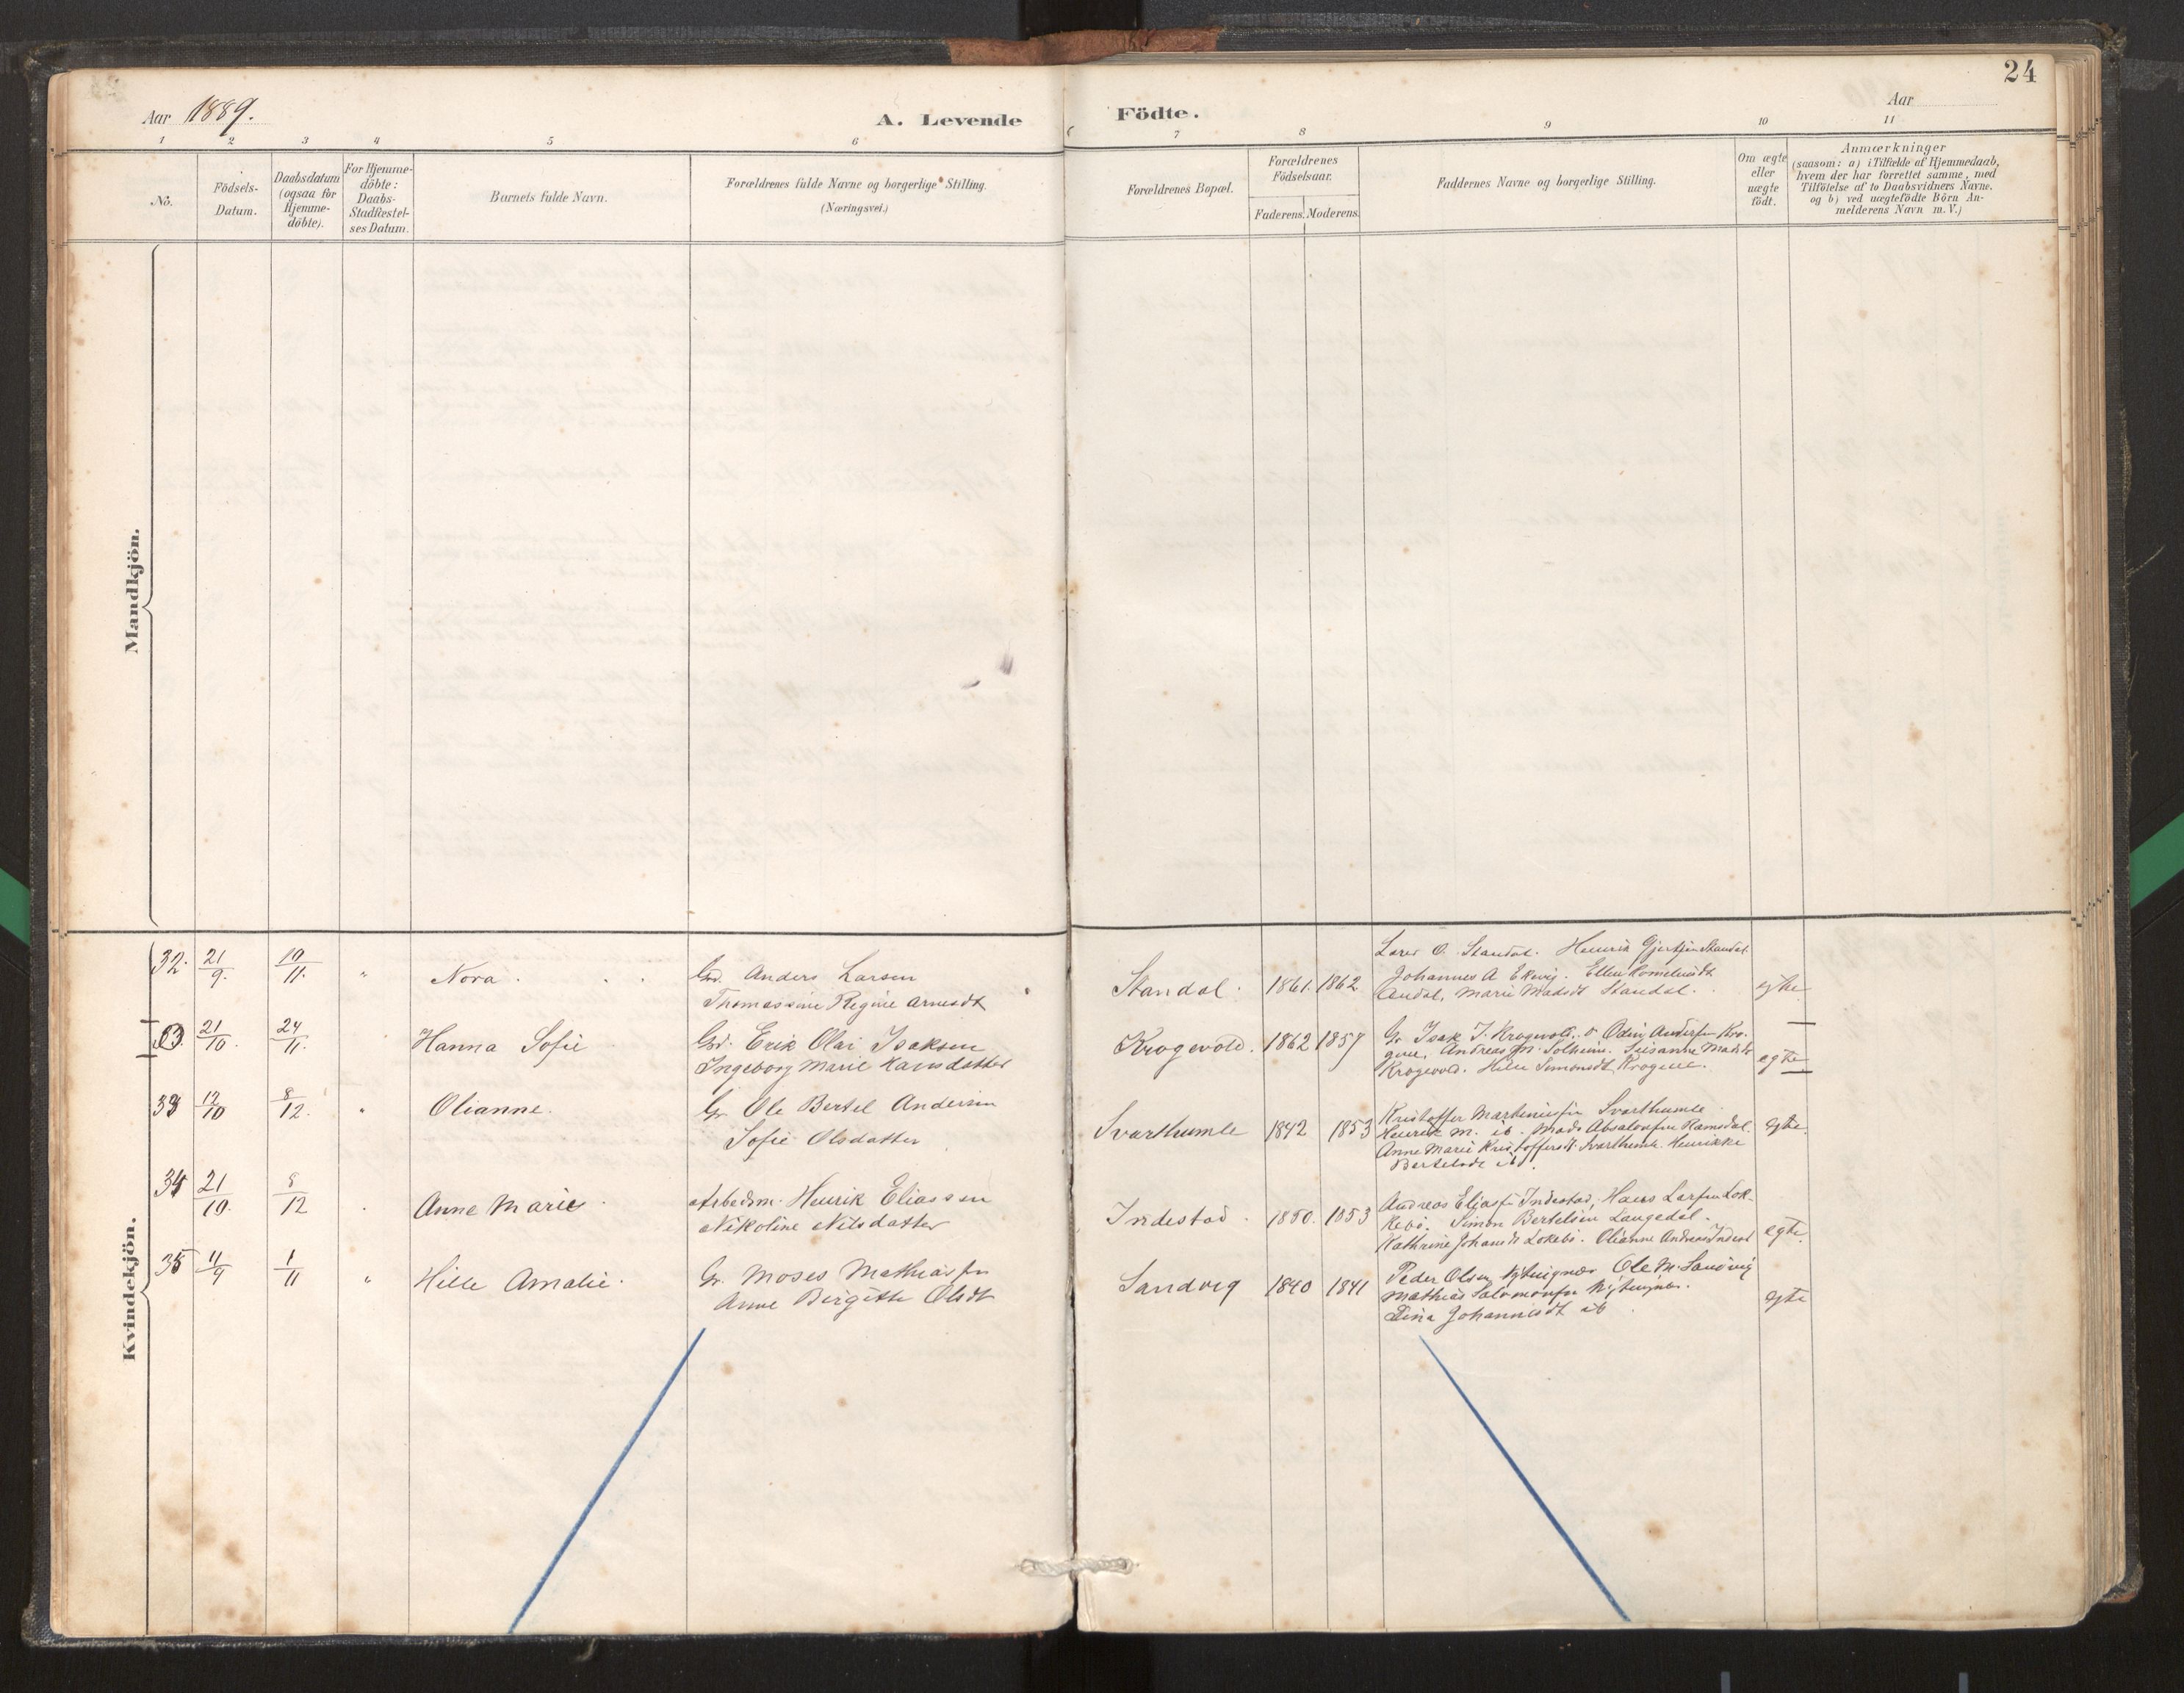 24
Aar 1889.
A. Levende
Födte.
Aar
1 2 3 4 5 6
7 8 9 10 11
No.
Födsels-
Datum.
Daabsdatum
(ogsaa for
Hjemme-
döbte).
For Hjemme-
döbte:
Daabs-
Stadfæstel-
ses Datum.
Barnets fulde Navn.
Forældrenes fulde Navne og borgerlige Stilling.
(Næringsvei.)
Forældrenes Bopæl.
Forældrenes
Födselsaar.
Faderens. Moderens.
Faddernes Navne og borgerlige Stilling.
Om ægte
eller
uægte
födt.
Anmærkninger
(saasom: a) i Tilfælde af Hjemmedaab,
hvem der har forrettet samme, med
Tilföielse af to Daabsvidners Navne.
og b) ved uægtefödte Börn An-
melderens Navn m. V.)
Mandkjön.
Kvindekjön.
32. 21/9. 10/11. " Nora.
Gd. Anders Larsen
Thomassine Regine Arnesdt
Standal. 1861. 1862.
Lars O. Standal. Henrik Gjertsen Standal
Johannes A Ekevig. Ellen
Marie Madsdt Standal.
egte
21/10. 24/11. Hanna Sofie
Gd. Erik Olai Isaksen
Ingeborg Marie Hansdatter
Krogevold. 1862 1857
Gr Isak I. Krogevold, Odin Andersen Kro-
gene, Andreas M. Solheim. Susanne Madsdt
Krogevold. Simonsdt Krogene.
egte
33 12/10 8/12. " Olianne.
Gr Ole Bertel Andersen
Sofie Olsdatter
Svarthumle 1842 1853
Kristoffer Martinusen Svarthumle
Henrik M. ib. Mads Absalonsen Hamsdal.
Anne Marie Kristoffersdt Svarthumle Henrikke
Bertelsdt ib.
egte.
34 21/10. 8/12 Anne Marie
Arbeidsm. Henrik Eliassen
Nikoline Nilsdatter
Indestad. 1850. 1853
Andreas Eliassen Indestad, Hans Larsen Lok-
kebö. Simon Bertelsen Langedal.
Kathrine Johansdt Lokebö. Olianne Andreas Indest
egte.
35 11/9 1/11 " Hille Amalie.
Gr. Moses Mathiassen
Anne Birgitte Olsdt
Sandvig 1840 1841
Peder Olsen Nytingnes Ole M. Sandvig
Mathias Salomonsen Nytingnes.
Dina Johannesdt ib
egte